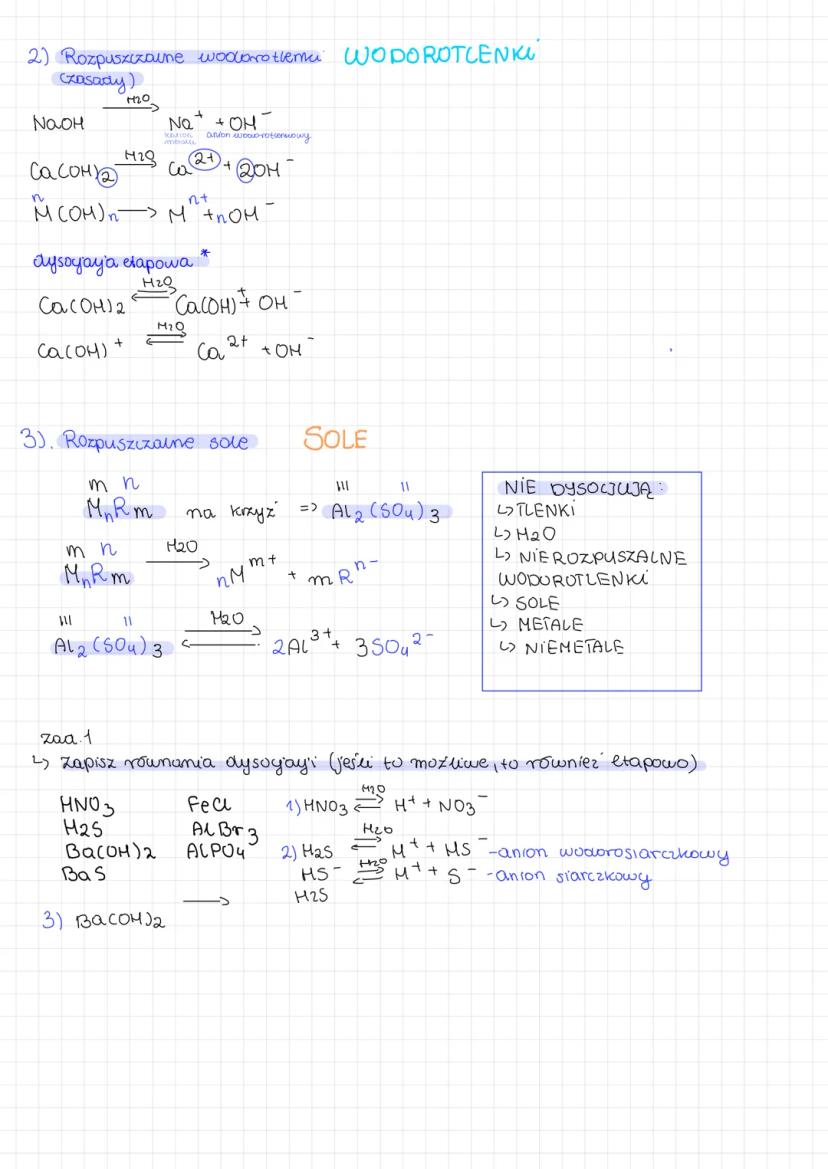 2) Rozpuszczalne wodorotlenki WODOROTLENKI
(zasady)
NaOH H2O → Na⁺ + OH⁻
kation metalu anion wodorotlenkowy
Ca(OH)2 H2O → Ca²⁺ + 2OH⁻
n
M(OH)n → Mⁿ⁺ + nOH⁻
dysocjacja etapowa *
Ca(OH)2 H2O ⇌ Ca(OH)⁺ + OH⁻
Ca(OH)⁺ H2O ⇌ Ca²⁺ + OH⁻
3). Rozpuszczalne sole SOLE
m n III II
MnRm na krzyż => Al2(SO4)3
m n
MnRm H2O → nMᵐ⁺ + mRⁿ⁻
III II
Al2(SO4)3 H2O ⇌ 2Al³⁺ + 3SO4²⁻
NIE DYSOCJUJĄ:
↳ TLENKI
↳ H2O
↳ NIEROZPUSZALNE
WODOROTLENKI
↳ SOLE
↳ METALE
↳ NIEMETALE
zad.1
↳ zapisz równania dysocjacji (jeśli to możliwe, to również etapowo)
HNO3 FeCl 1) HNO3 H2O ⇌ H⁺ + NO3⁻
H2S AlBr3
Ba(OH)2 AlPO4 2) H2S H2O ⇌ H⁺ + HS⁻ - anion wodorosiarczkowy
BaS HS⁻ H2O ⇌ H⁺ + S⁻ - anion siarczkowy
H2S
3) Ba(OH)2 →